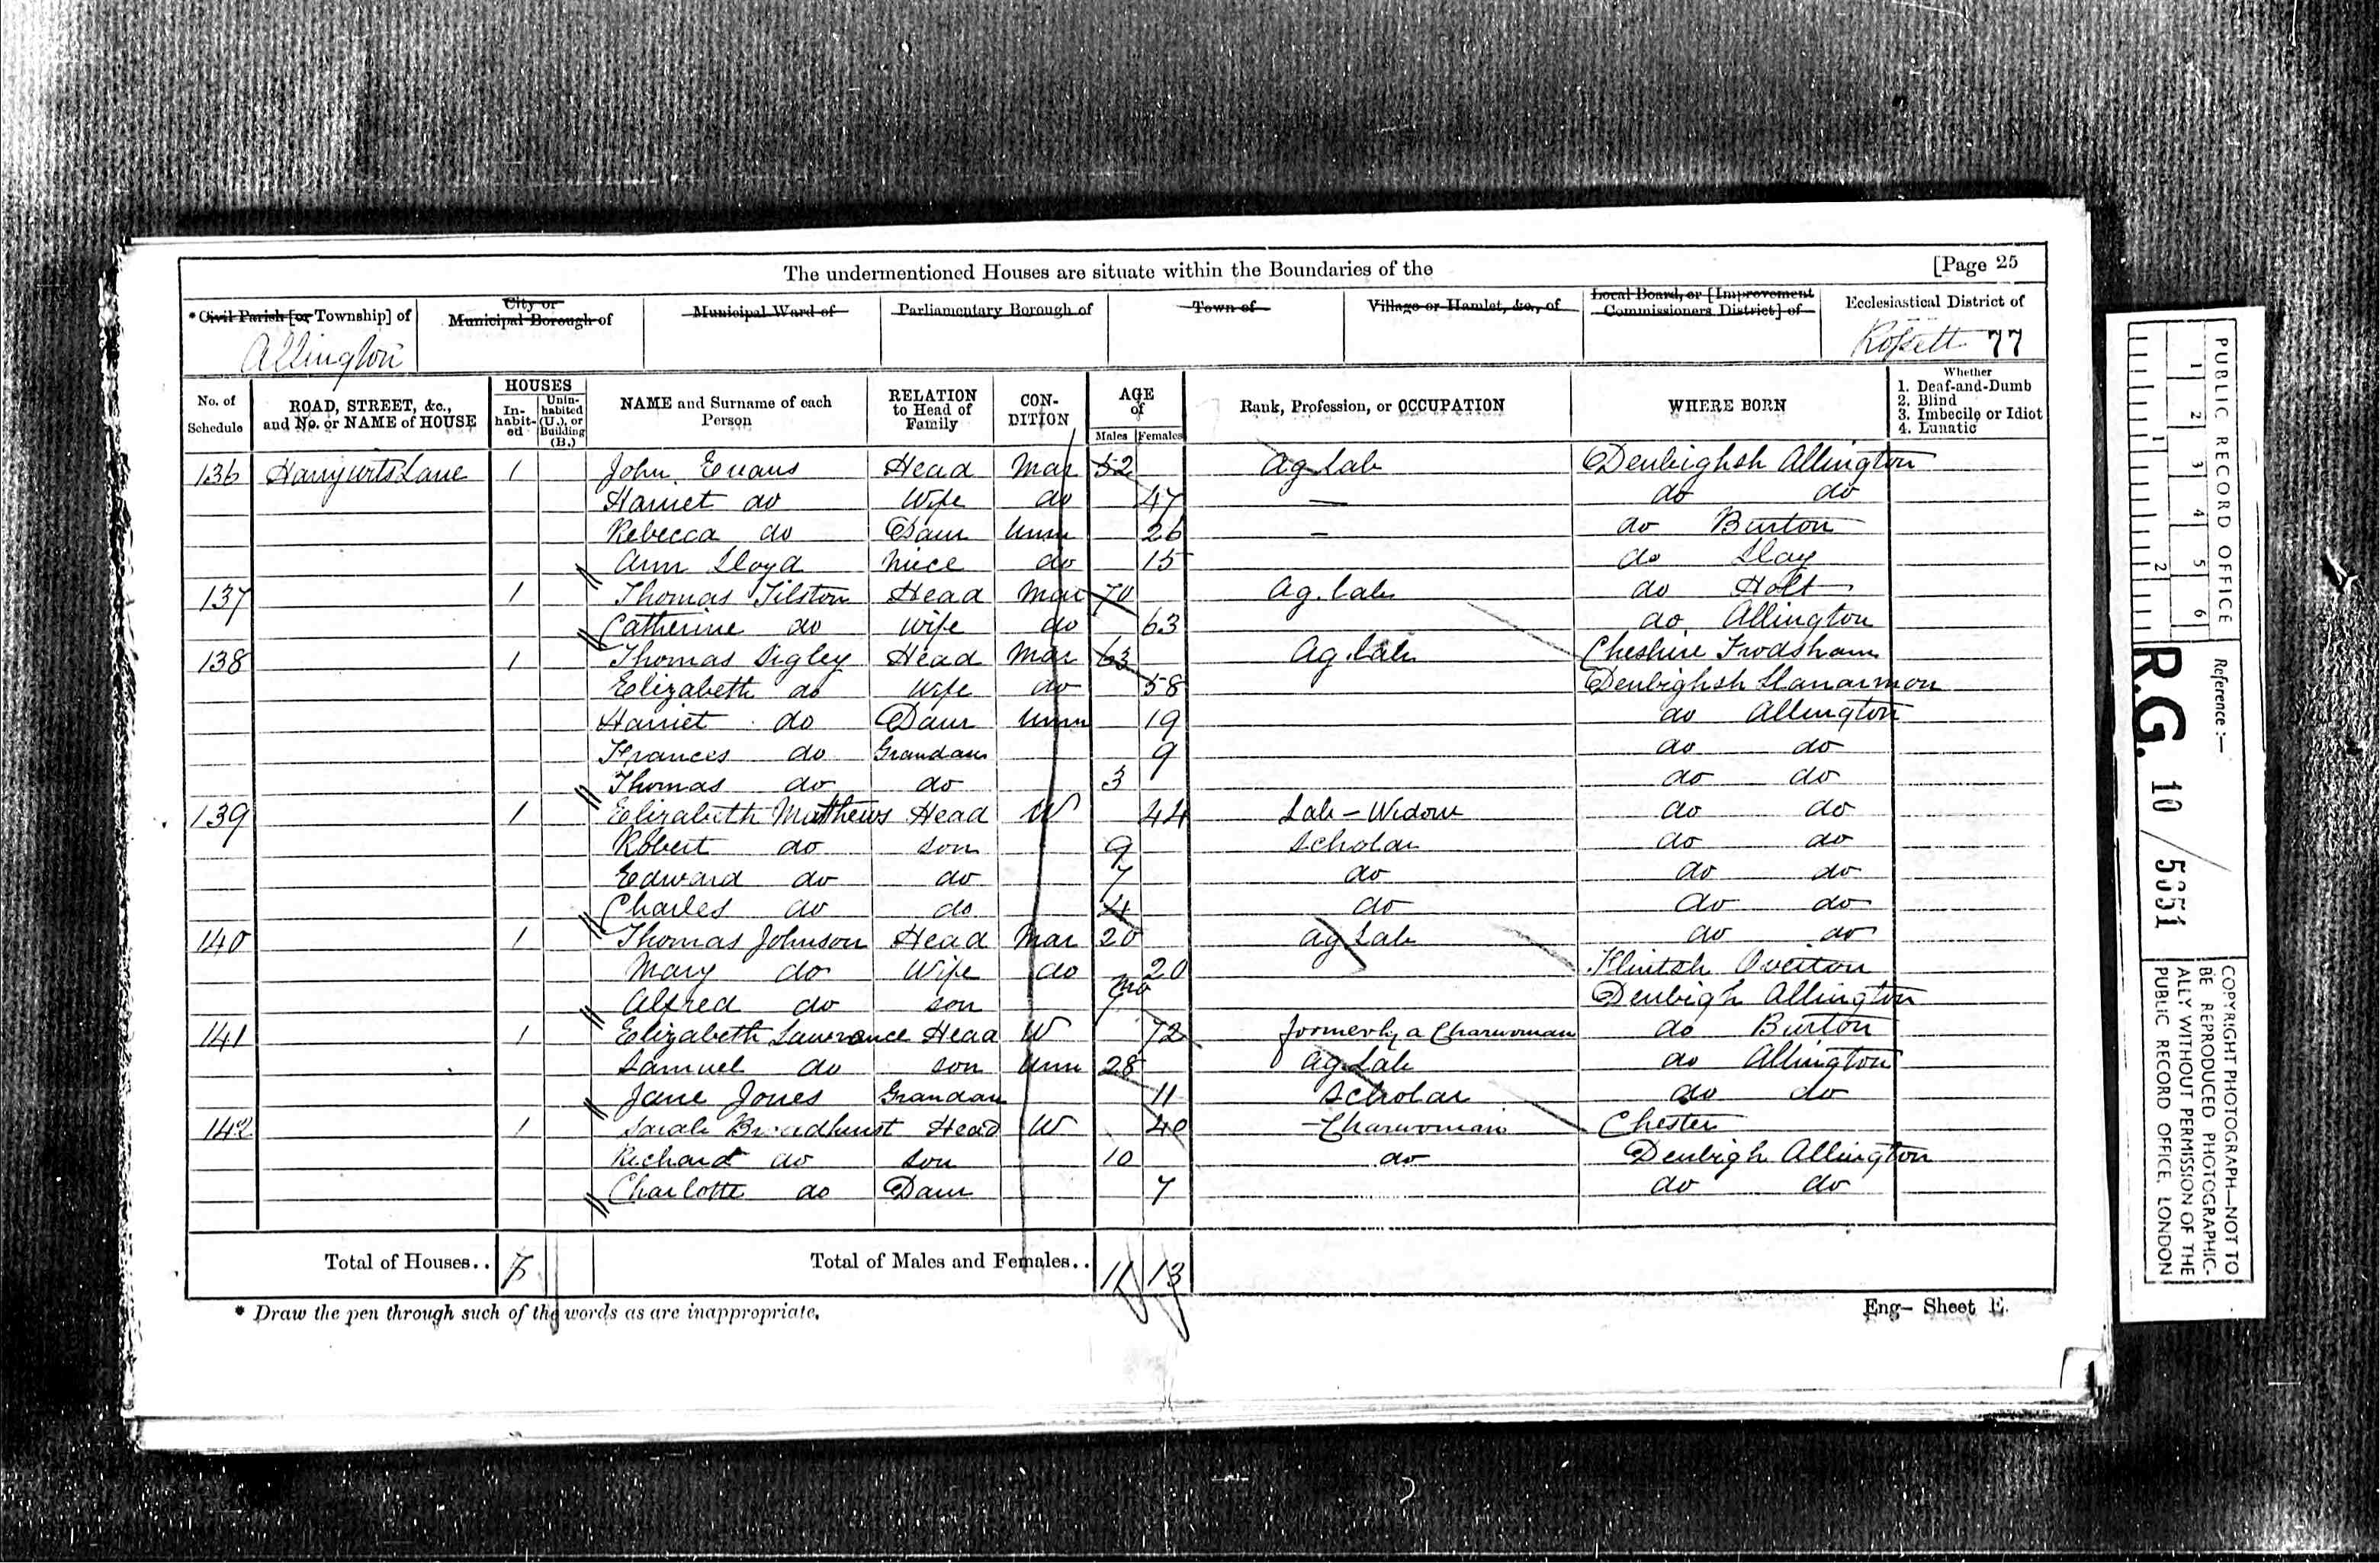 The undermentioned Houses are situate within the Boundaries of the [Page 25
* Civil Parish [or Township] of City or Municipal Borough of Municipal Ward of Parliamentary Borough of Town of Village or Hamlet, &c., of Local Board, or [Improvement Commissioners District] of Ecclesiastical District of
Allington Rossett 77
No. of Schedule ROAD, STREET, &c., and No. or NAME of HOUSE HOUSES In-habit-ed Unin-habited (U.), or Building (B.) NAME and Surname of each Person RELATION to Head of Family CON-DITION AGE of Males Females Rank, Profession, or OCCUPATION WHERE BORN Whether 1. Deaf-and-Dumb 2. Blind 3. Imbecile or Idiot 4. Lunatic
136 Lane 1 John Evans Head Mar 52 Ag Lab Denbighsh Allington
Harriet do Wife do 47 — do do
Rebecca do Daur Unm 26 — do Burton
Ann Lloyd Niece do 15 do Llay
137 1 Thomas Tilston Head Mar 70 Ag. Lab do Holt
Catherine do Wife do 63 do Allington
138 1 Thomas Sigley Head Mar 63 Ag. Lab Cheshire Frodsham
Elizabeth do Wife do 58 Denbighsh Llanarmon
Harriet do Daur Unm 19 do Allington
Frances do Grandaur 9 do do
Thomas do do 3 do do
139 1 Elizabeth Matthews Head W 44 Lab - Widow do do
Robert do son 9 Scholar do do
Edward do do 7 do do do
Charles do do 4 do do do
140 1 Thomas Johnson Head Mar 20 Ag Lab do do
Mary do Wife do 20 Flintsh Overton
Alfred do son 7 mo Denbigh Allington
141 1 Elizabeth Lawrance Head W 72 formerly a Charwoman do Burton
Samuel do son Unm 28 Ag Lab do Allington
Jane Jones Grandaur 11 Scholar do do
142 1 Sarah Broadhurst Head W 40 Charwoman Chester
Richard do son 10 do Denbigh Allington
Charlotte do Daur 7 do do
Total of Houses.. 7 Total of Males and Females.. 11 13
* Draw the pen through such of the words as are inappropriate.
Eng— Sheet E.
PUBLIC RECORD OFFICE
1 2 3 4 5 6
1 2
Reference:—
R.G. 10 / 5651
COPYRIGHT PHOTOGRAPH—NOT TO BE REPRODUCED PHOTOGRAPHIC-ALLY WITHOUT PERMISSION OF THE PUBLIC RECORD OFFICE, LONDON